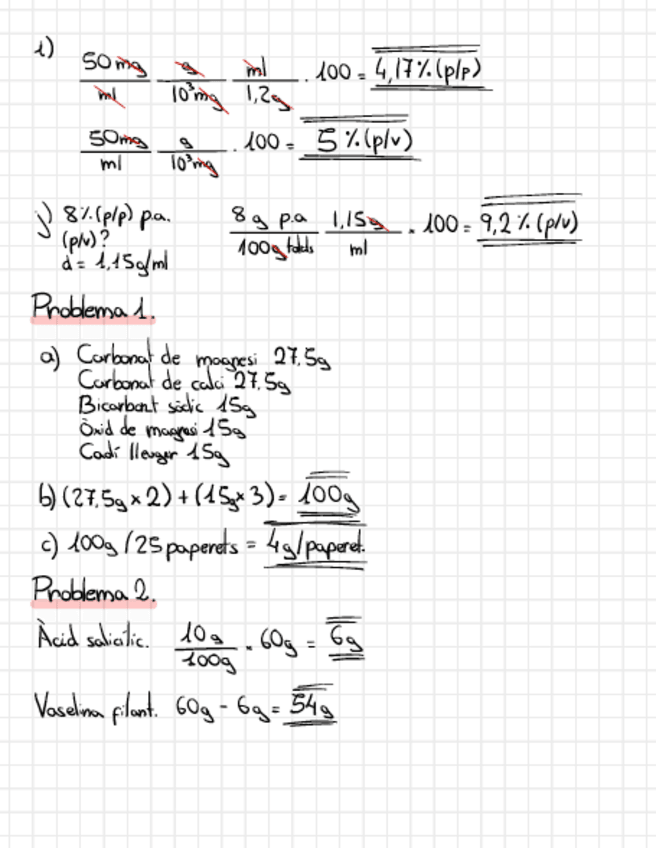 i) 50mg/ml g/10³mg ml/1,2g · 100 = 4,17% (p/p)
50mg/ml g/10³mg · 100 = 5% (p/v)
j) 8% (p/p) p.a.
(p/v)?
d = 1,15g/ml
8g p.a/100g totals 1,15g/ml · 100 = 9,2% (p/v)
Problema 1.
a) Carbonat de magnesi 27,5g
Carbonat de calci 27,5g
Bicarbont sòdic 15g
Òxid de magnesi 15g
Caolí lleuger 15g
b) (27,5g × 2) + (15g × 3) = 100g
c) 100g / 25 paperets = 4g/paperet.
Problema 2.
Àcid salicílic. 10g/100g · 60g = 6g
Vaselina filant. 60g - 6g = 54g